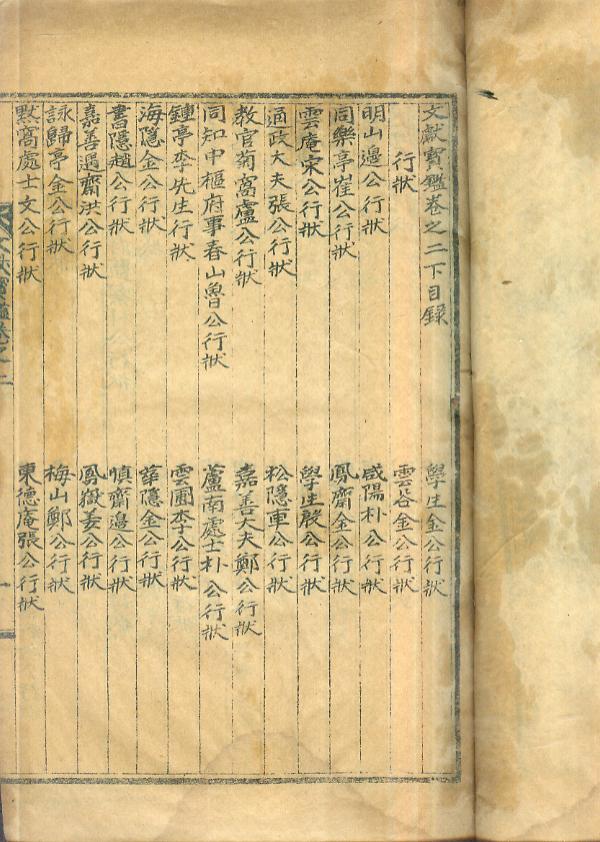 文獻寶鑑卷之二下目錄 學生金公行狀
行狀 雲谷金公行狀
明山邊公行狀 咸陽朴公行狀
同樂亭崔公行狀 鳳齋金公行狀
雲庵宋公行狀 學生殷公行狀
通政大夫張公行狀 松隱車公行狀
教官菊窩盧公行狀 嘉善大夫鄭公行狀
同知中樞府事春山魯公行狀 蘆南處士朴公行狀
鍾亭李先生行狀 雲圃李公行狀
海隱金公行狀 華隱金公行狀
書隱趙公行狀 愼齋邊公行狀
嘉善遇齋洪公行狀 鳳嶽姜公行狀
詠歸亭金公行狀 梅山鄭公行狀
默窩處士文公行狀 東德庵張公行狀
文獻寶鑑卷之二